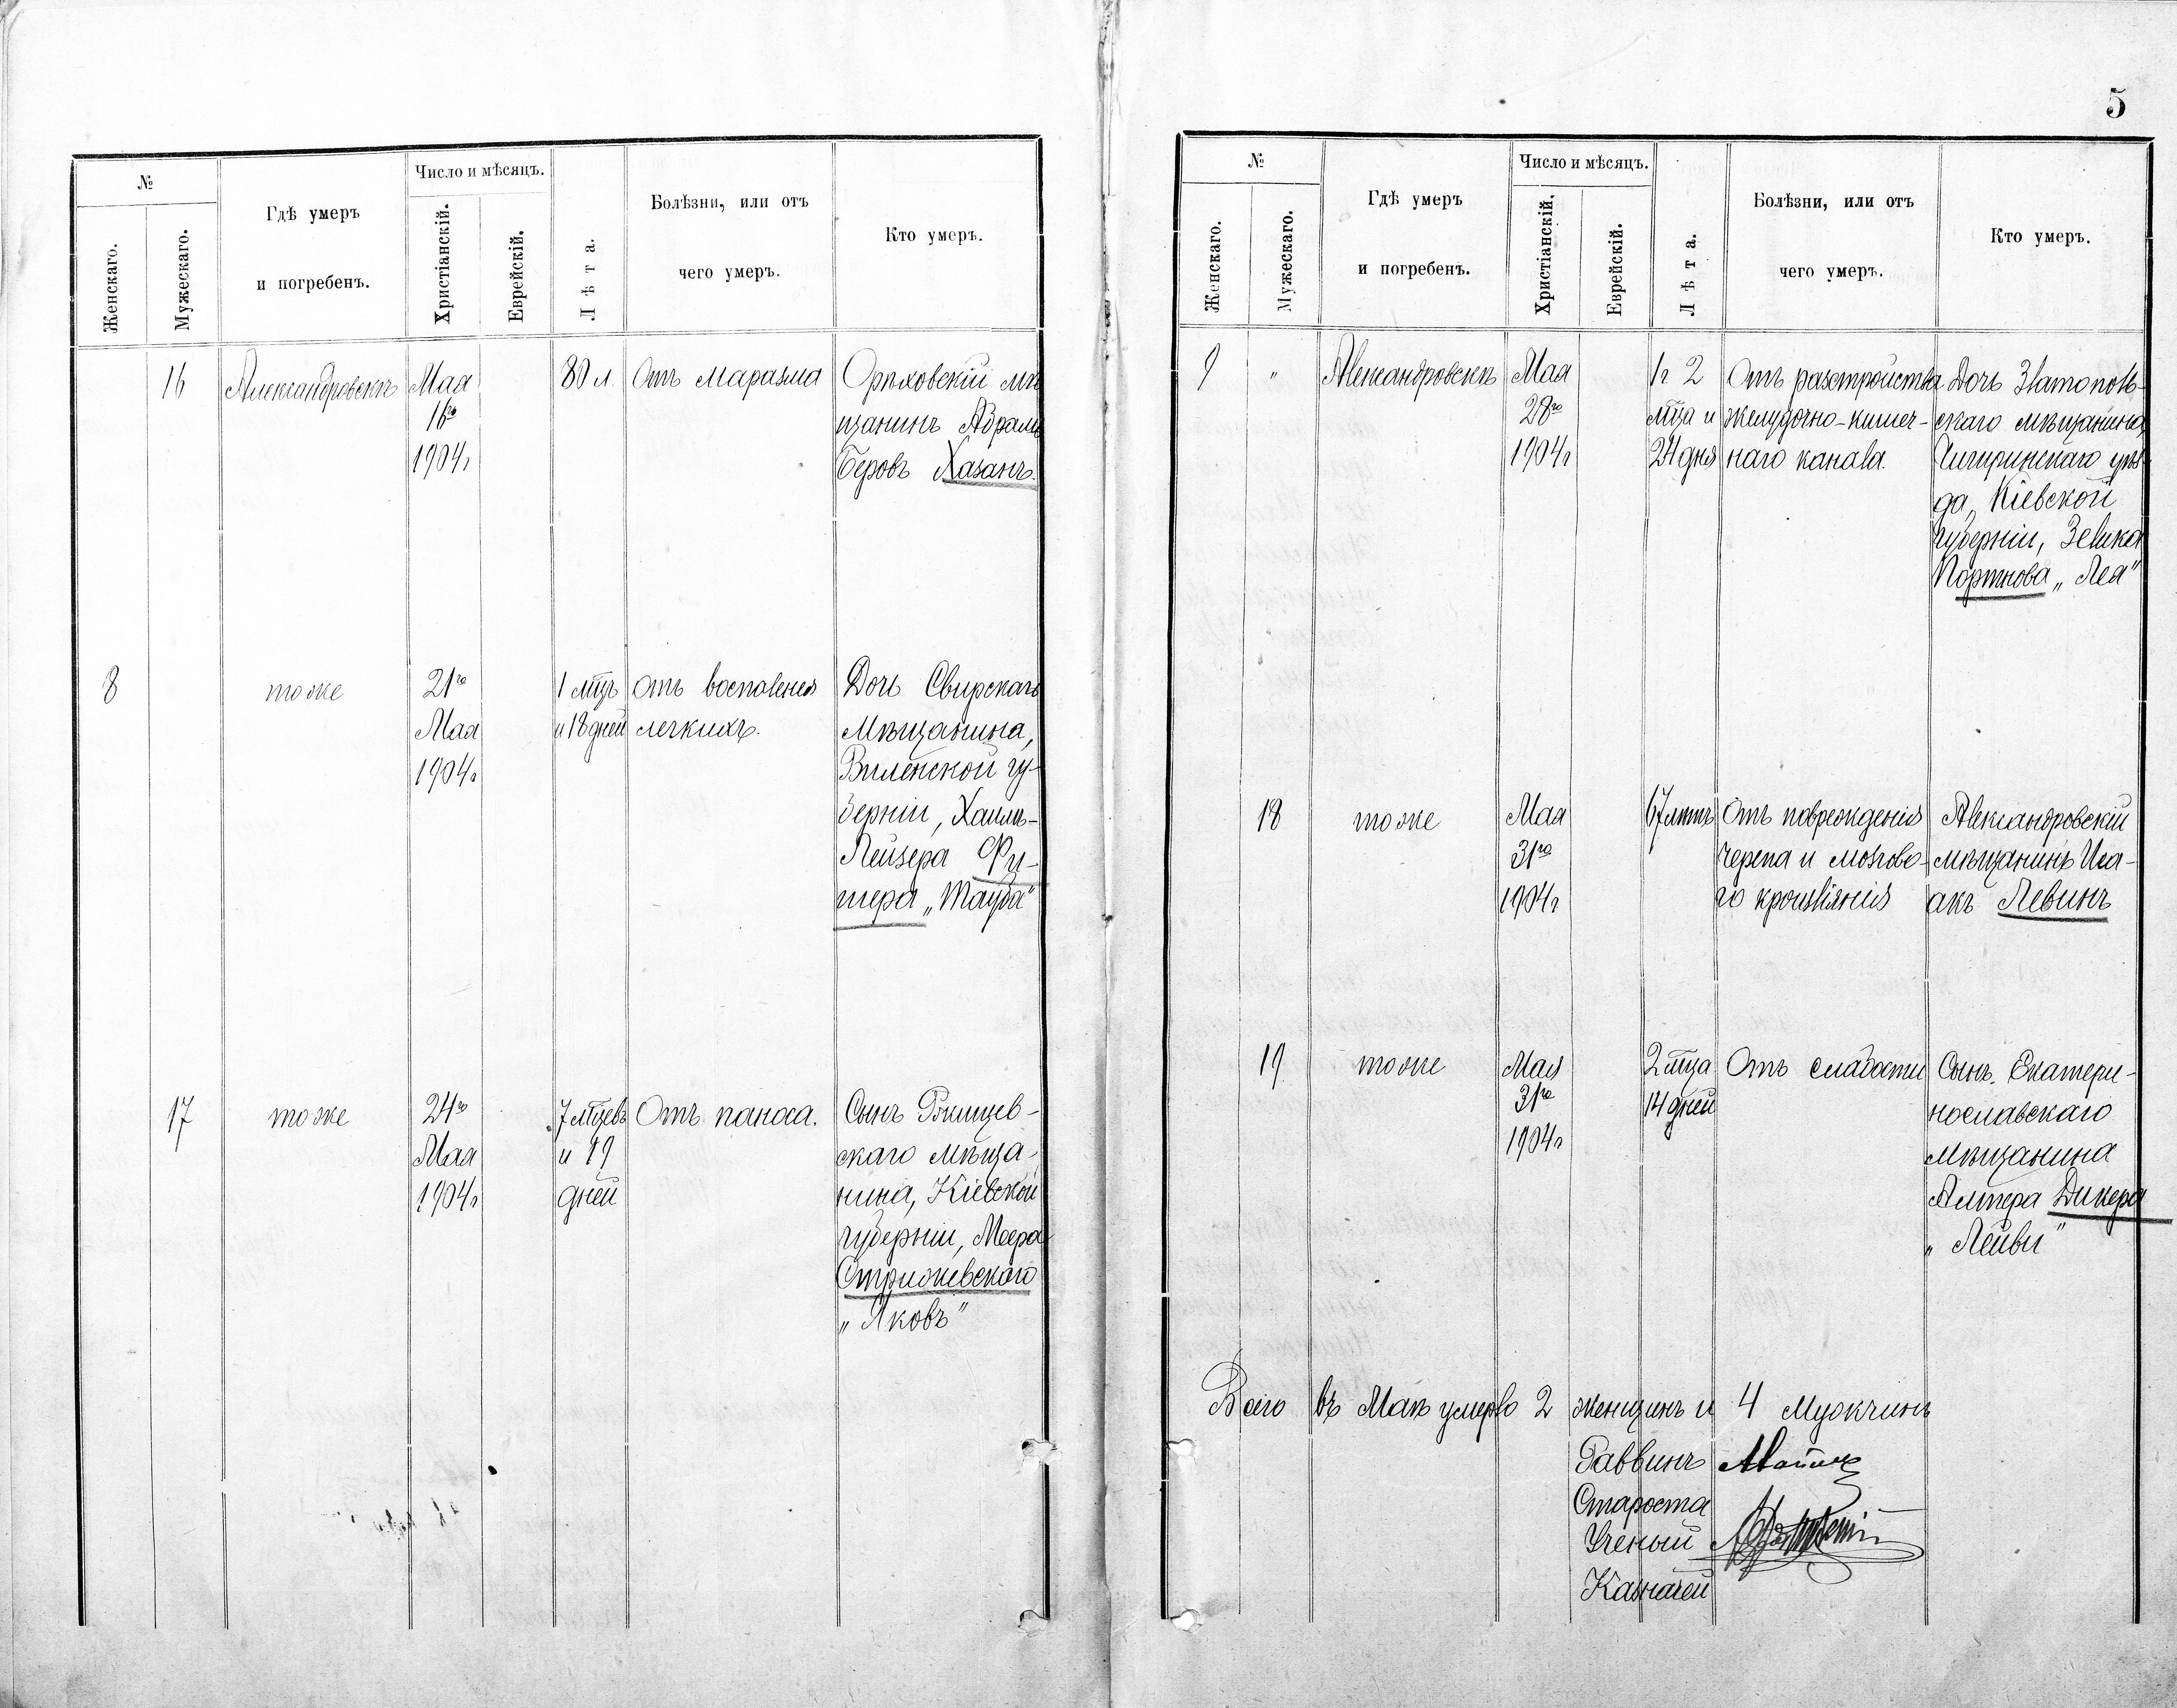 №
Число и мѣсяцъ.
Женскаго.
Мужескаго.
Гдѣ умеръ
и погребенъ.
Христіанскій.
Еврейскій.
Лѣта.
Болѣзни, или отъ
чего умеръ.
Кто умеръ.
16 Александровскъ Мая 80 л. Отъ маразма Орѣховскій мѣ
16го щанинъ Абрамъ
1904г Беровъ Хазанъ.
8 тоже 21го 1 мцъ Отъ воспаленія Дочь Свирскаго
Мая и 18 дней легкихъ. Мѣщанина,
1904г Виленской гу-
берніи, Хаимъ-
Лейзера Фи-
шера „Тауба"
17 тоже 24го 7 мцевъ Отъ поноса. Сынъ Ржищев-
Мая и 19 скаго мѣща-
1904г дней нина, Кіевской
губерніи, Меера
Стрижевскаго
„Яковъ"
5
№
Число и мѣсяцъ.
Женскаго.
Мужескаго.
Гдѣ умеръ
и погребенъ.
Христіанскій.
Еврейскій.
Лѣта.
Болѣзни, или отъ
чего умеръ.
Кто умеръ.
9 " Александровскъ Мая 1г 2 Отъ разстройства Дочь Златополь-
28го мца и желудочно-кишеч- скаго мѣщанина,
1904г 24 дня наго канала. Чигиринскаго уѣз-
да, Кіевской
губерніи, Зелика
Портнова „Лея"
18 тоже Мая 67 лѣтъ Отъ поврежденія Александровскій
31го черепа и мозгово- мѣщанинъ Иса-
1904г го кроизліянія акъ Левинъ
19 тоже Мая 2 мца Отъ слабости Сынъ Екатери-
31го 14 дней нославскаго
1904г мѣщанина
Алтера Дикера
„Лейви"
Всего въ Маѣ умерло 2 женщинъ и 4 Мужчинъ
Раввинъ
Староста
Ученый
Казначей